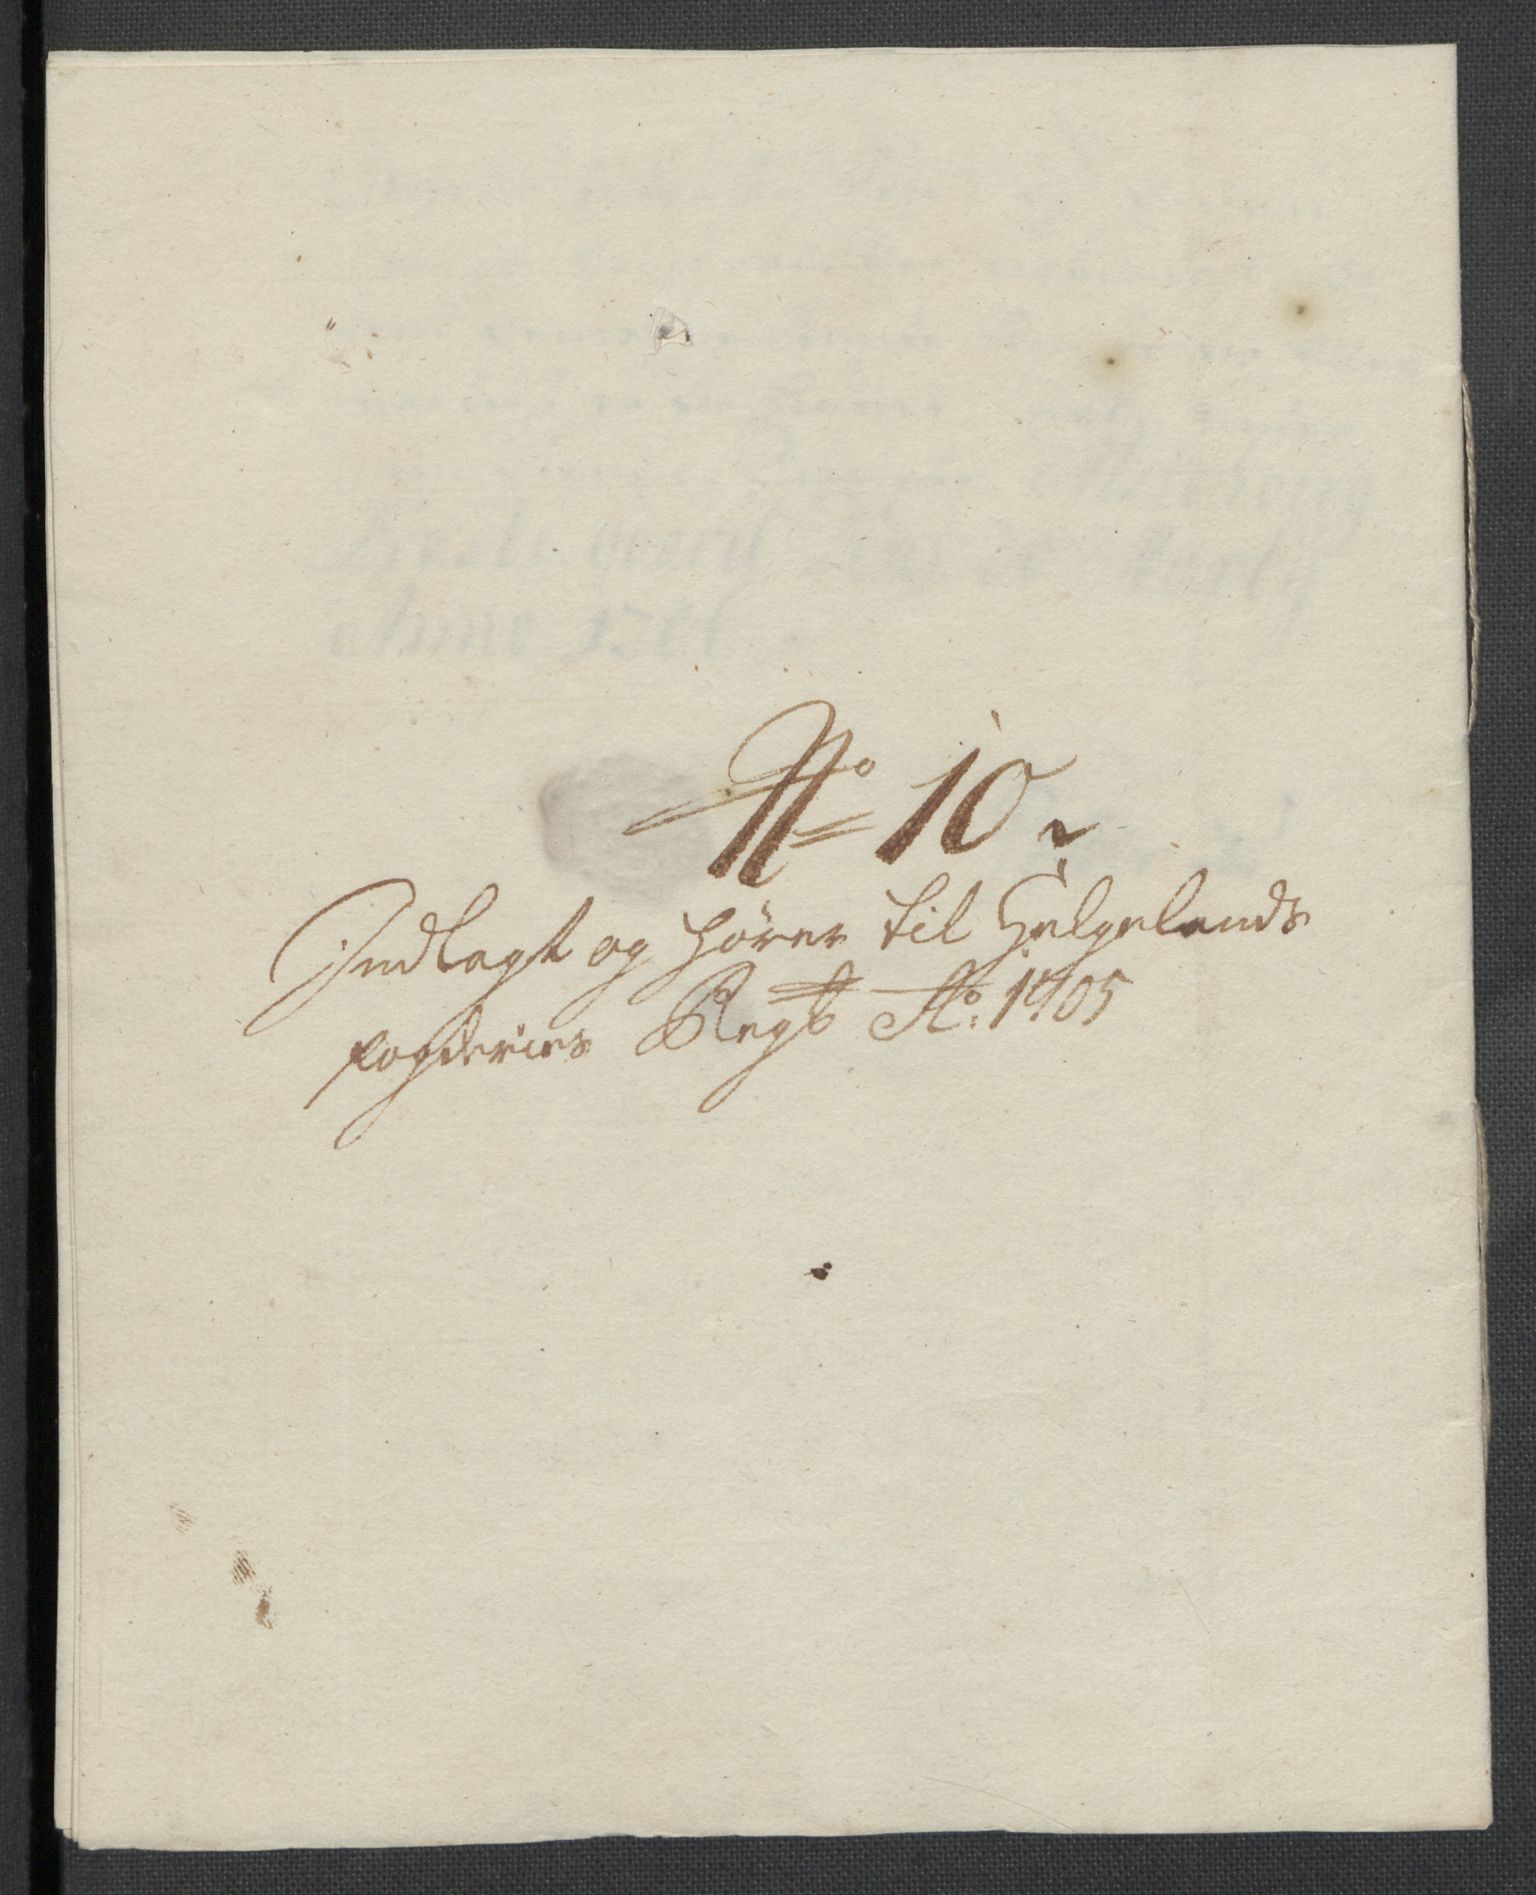 No 10
Indlagt og hører til Helgelands
fogderies Regb Ao: 1705